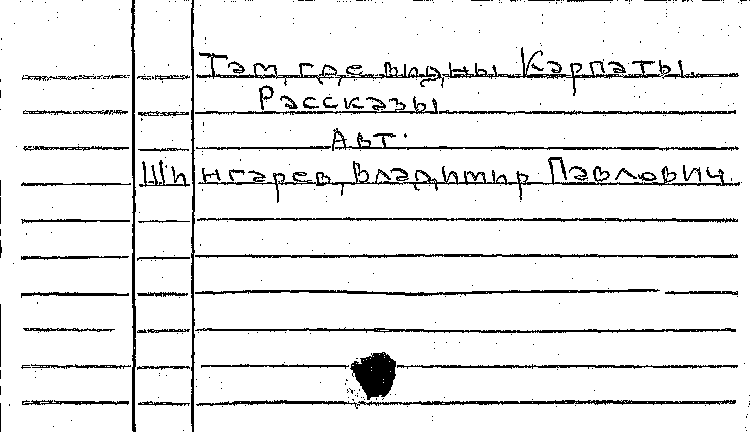 Там, где видны Карпаты.
Рассказы
Авт.
Шингарев, Владимир Павлович.